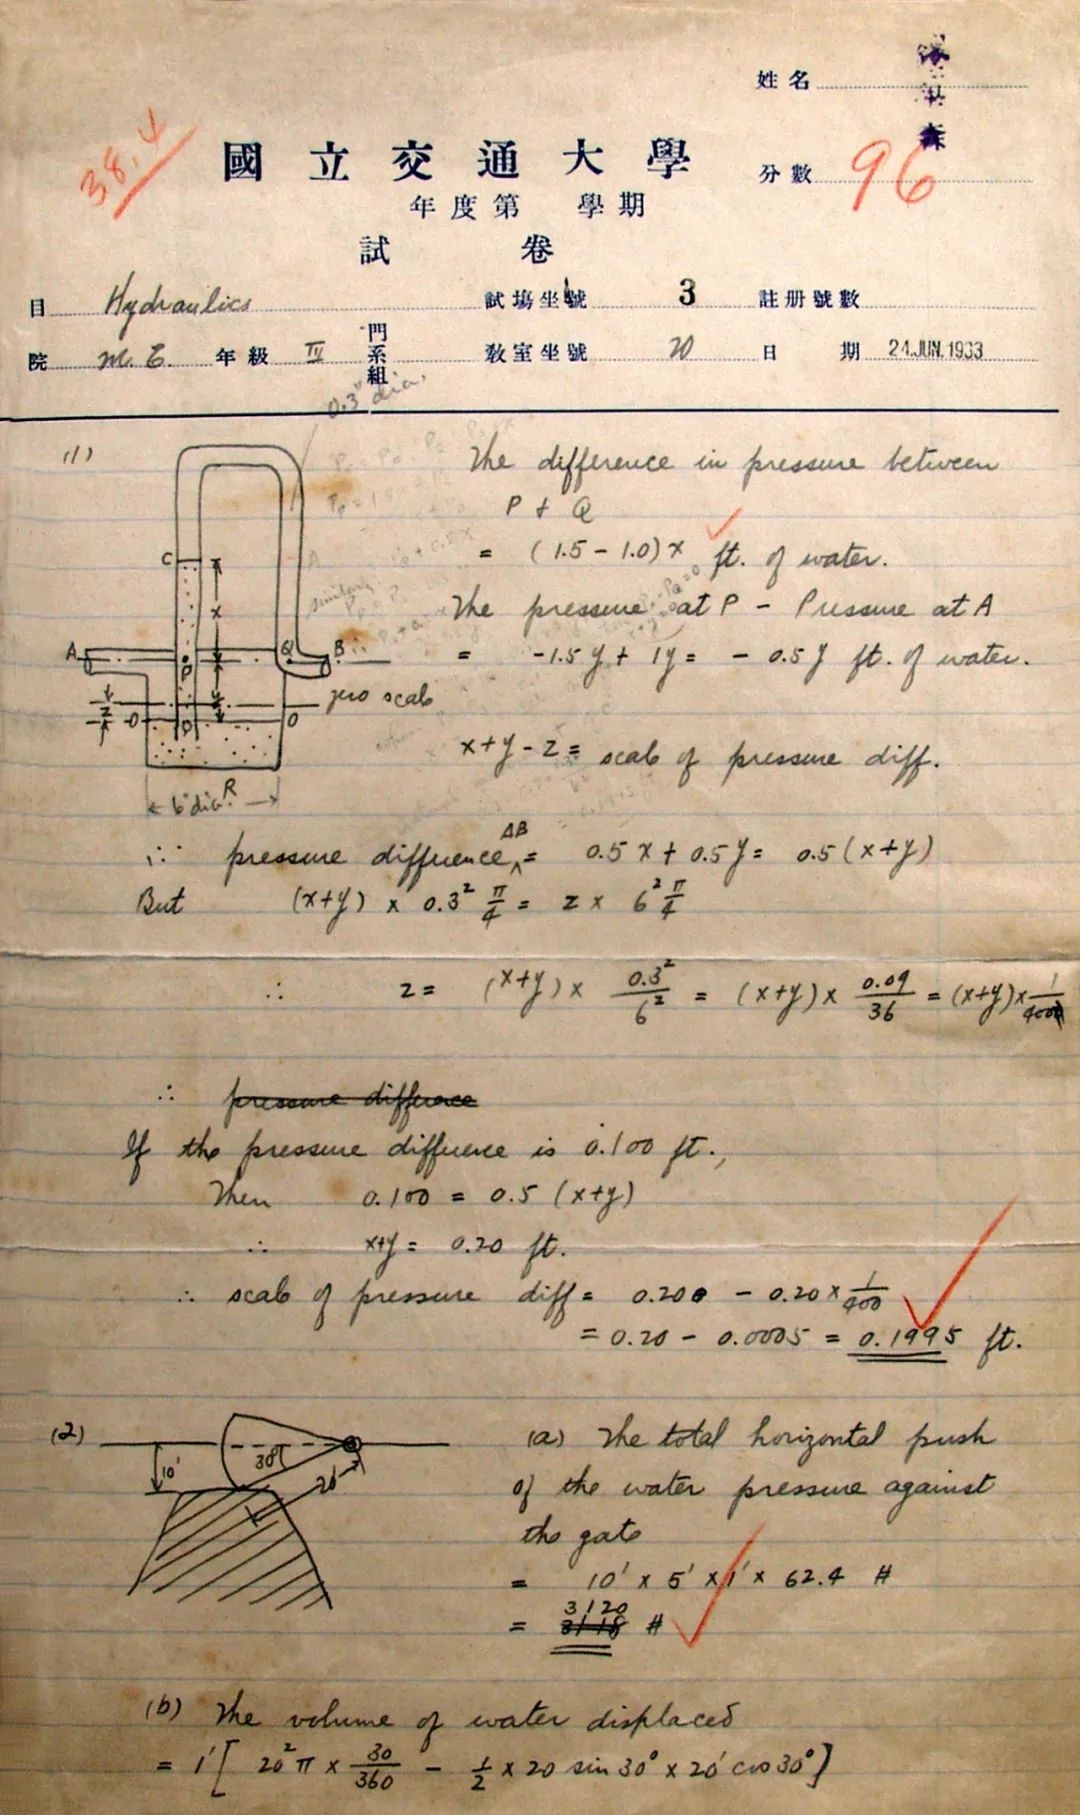 姓名
38.4
國立交通大學
分數 96
年度第 學期
試 卷
目 Hydraulics 試場坐號 3 註册號數
院 M.E. 年級 IV 門系組 教室坐號 20 日 期 24.JUN.1933
0.3" dia.
(1)
The difference in pressure between
P + Q
= (1.5 - 1.0) x ft. of water.
The pressure at P - Pressure at A
= -1.5 y + 1y = - 0.5 y ft. of water.
x+y-z = scale of pressure diff.
C
x
A P Q B
zero scale
z y
O O
R
6" dia.
∴ pressure difference AB = 0.5 x + 0.5 y = 0.5 (x+y)
But (x+y) × 0.3² π/4 = z × 6² π/4
∴ z = (x+y) × 0.3²/6² = (x+y) × 0.09/36 = (x+y) × 1/400
∴ pressure difference
If the pressure difference is 0.100 ft.,
Then 0.100 = 0.5 (x+y)
∴ x+y = 0.20 ft.
∴ scale of pressure diff = 0.200 - 0.20 × 1/400
= 0.20 - 0.0005 = 0.1995 ft.
(2)
10'
30°
20'
(a) The total horizontal push
of the water pressure against
the gate
= 10' × 5' × 1' × 62.4 #
3120
= 3118 #
(b) The volume of water displaced
= 1' [ 20² π × 30/360 - 1/2 × 20 sin 30° × 20' cos 30° ]